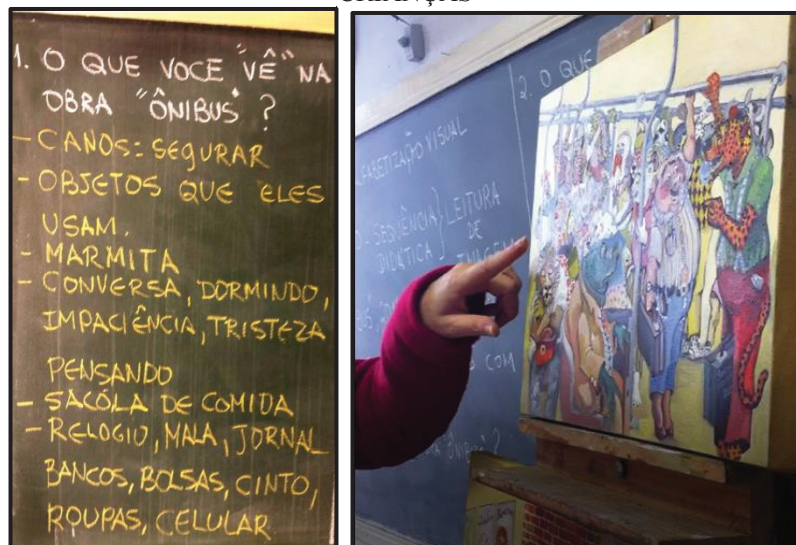 CRIANÇAS
1. O QUE VOCE "VÊ" NA
OBRA "ÔNIBUS" ?
- CANOS: SEGURAR
- OBJETOS QUE ELES
USAM.
- MARMITA
- CONVERSA, DORMINDO,
IMPACIÊNCIA, TRISTEZA
PENSANDO
- SACÓLA DE COMIDA
- RELOGIO, MALA, JORNAL
BANCOS, BOLSAS, CINTO,
ROUPAS, CELULAR
2. O QUE
ALFABETIZAÇÃO VISUAL
SEQUÊNCIA } LEITURA
DIDÁTICA DE
IMAGEM
COM
ÔNIBUS" ?